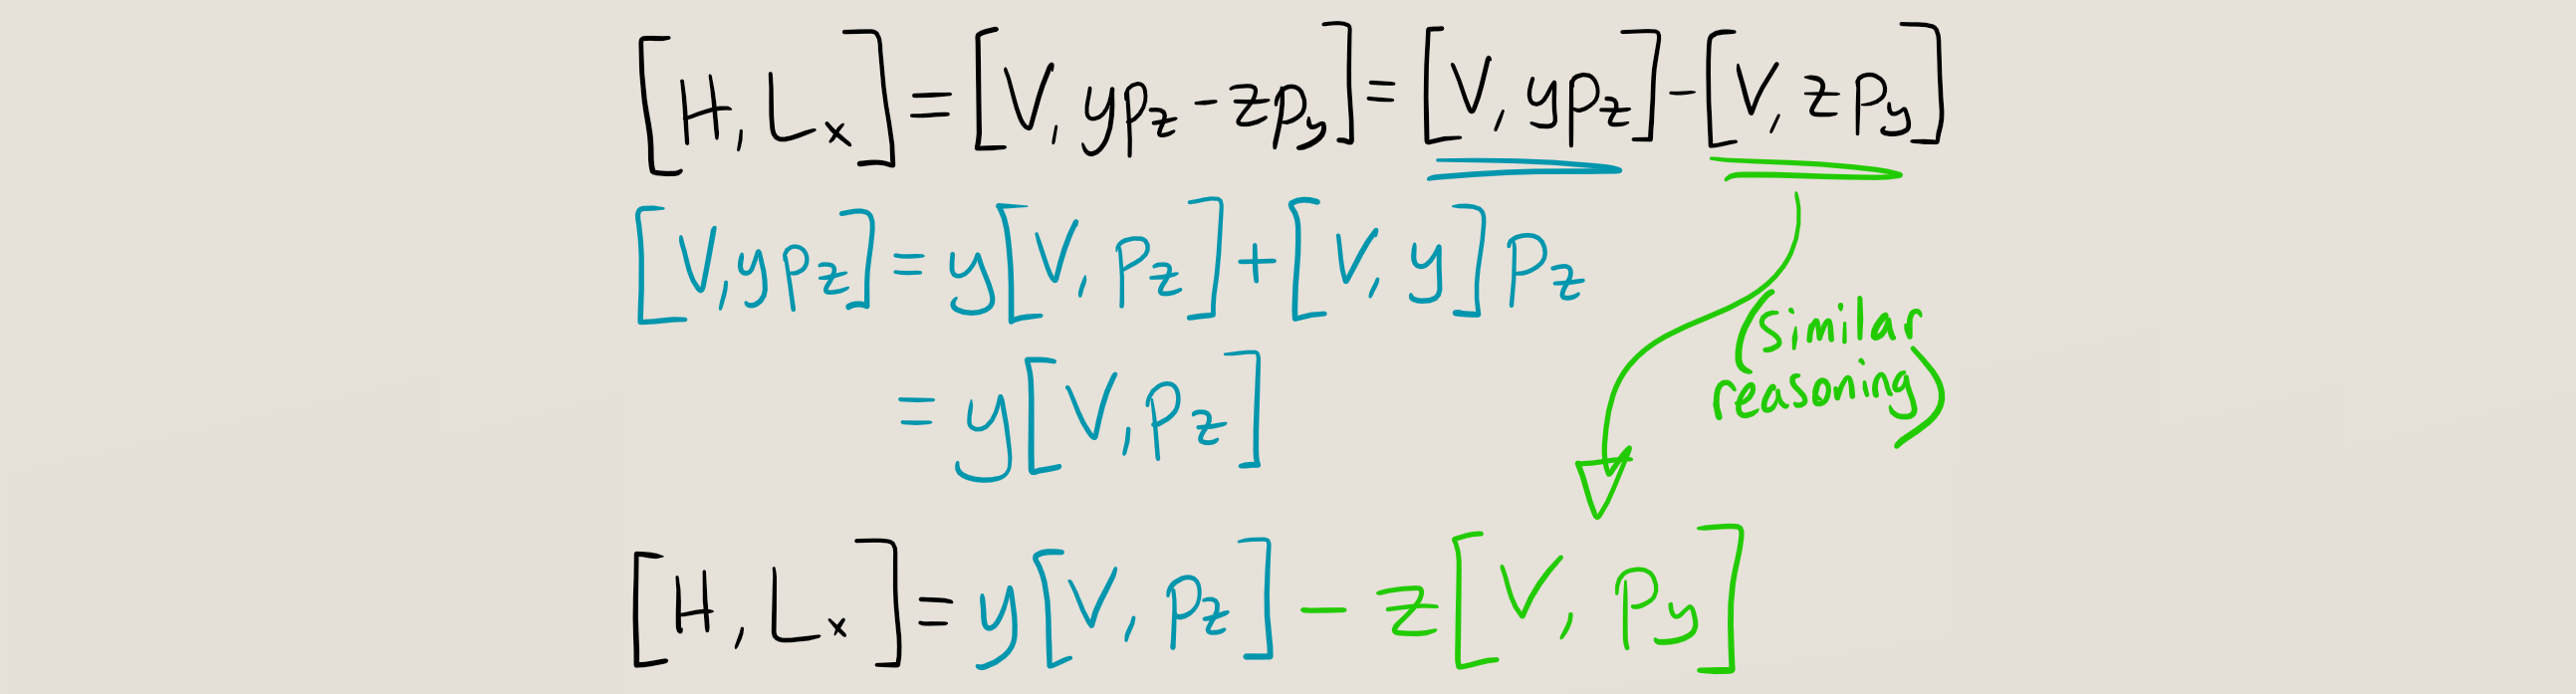 [H, Lₓ] = [V, yp_z - zp_y] = [V, yp_z] - [V, zp_y]
[V, yp_z] = y[V, p_z] + [V, y]p_z
= y[V, p_z]
(similar
reasoning)
[H, Lₓ] = y[V, p_z] - z[V, p_y]